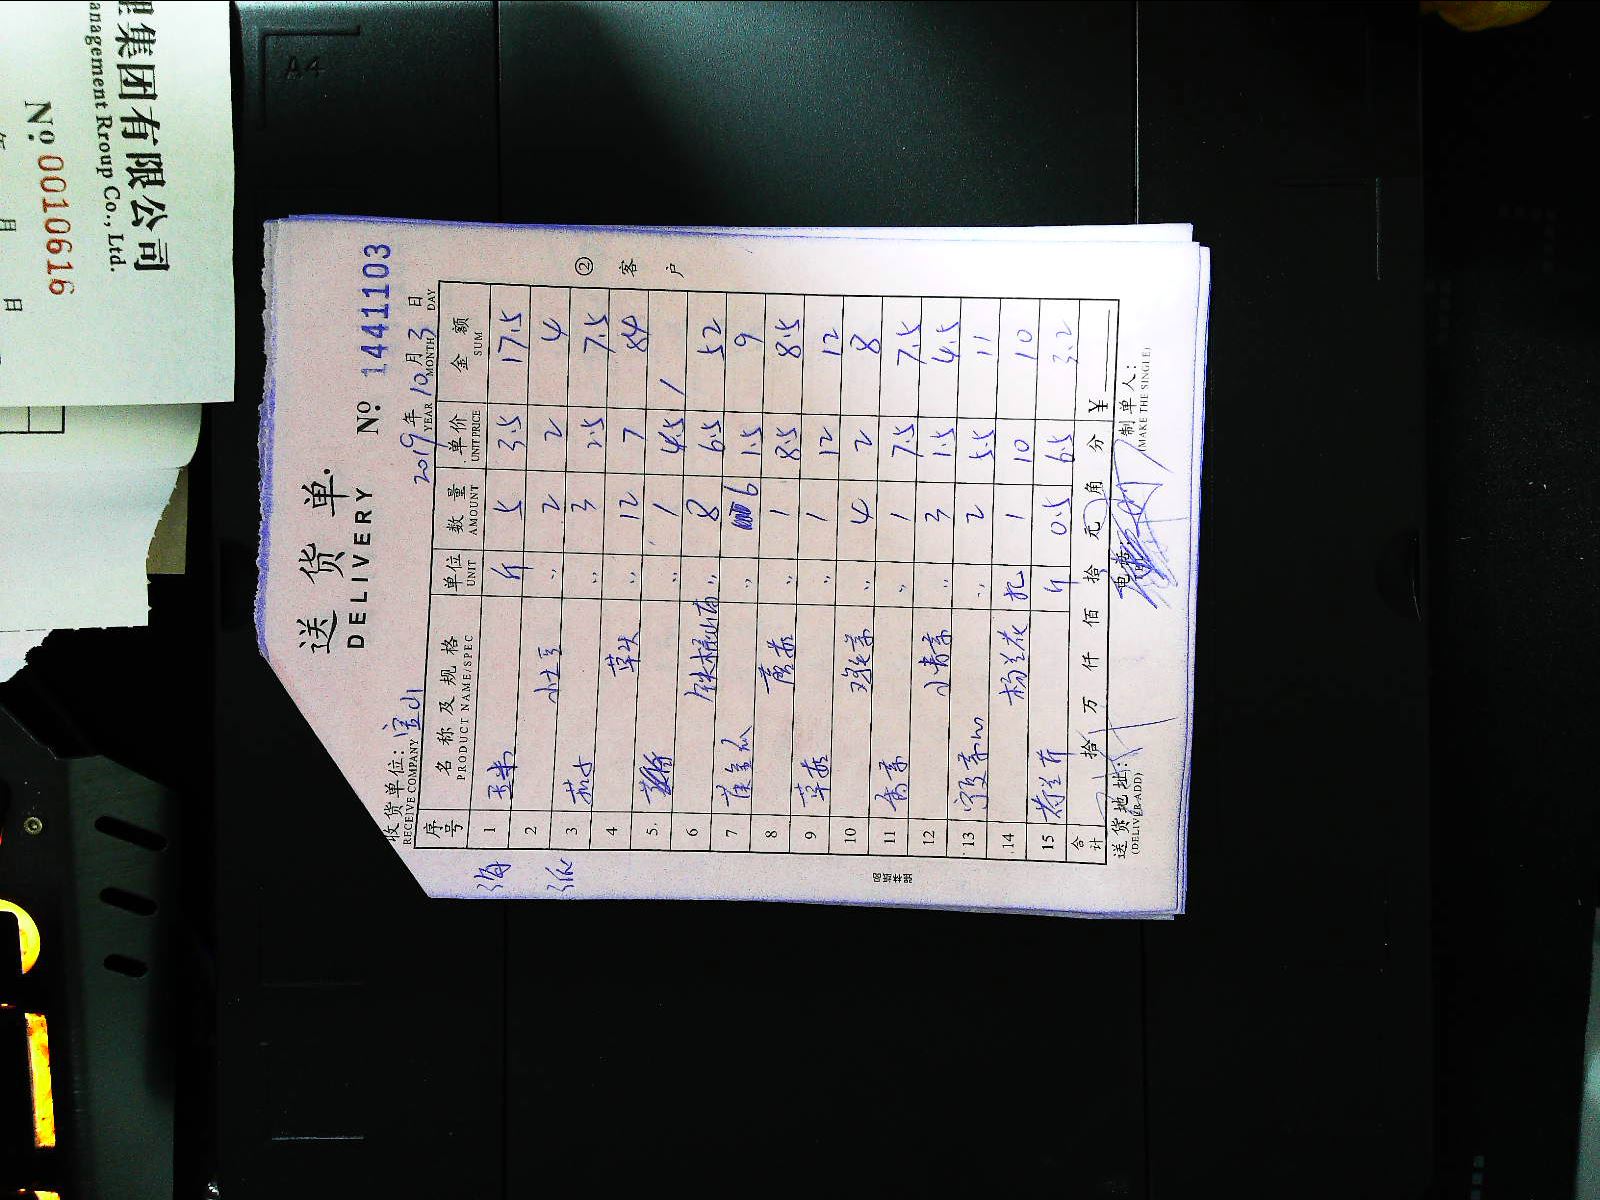 理集团有限公司
anagement Rroup Co., Ltd.
No 0010616
月 日
A4
送货单
DELIVERY No 1441103
收货单位: 宝山 2019年10月3日
RECEIVE COMPANY YEAR MONTH DAY
序号 名称及规格 单位 数量 单价 金额
PRODUCT NAME/SPEC UNIT AMOUNT UNIT PRICE SUM
1 玉米 斤 5 3.5 17.5
2 小土豆 〃 2 2 4
3 茄子 〃 3 2.5 7.5
4 草头 〃 12 7 84
5 〃 1 4.5 /
6 铁棍山药 〃 8 6.5 52
7 黄金瓜 〃 6 1.5 9
8 〃 1 8.5 8.5
9 草菇 〃 1 12 12
10 〃 4 2 8
11 香菜 〃 1 7.5 7.5
12 小青菜 〃 3 1.5 4.5
13 〃 2 5.5 11
14 杨兰花 扎 1 10 10
15 荷兰芹 斤 0.5 6.5 3.2
合计 拾 万 仟 佰 拾 元 角 分 ¥
送货地址: 电话: 制单人:
(DELIVER ADD) (MAKE THE SINGLE)
② 客户
海
派